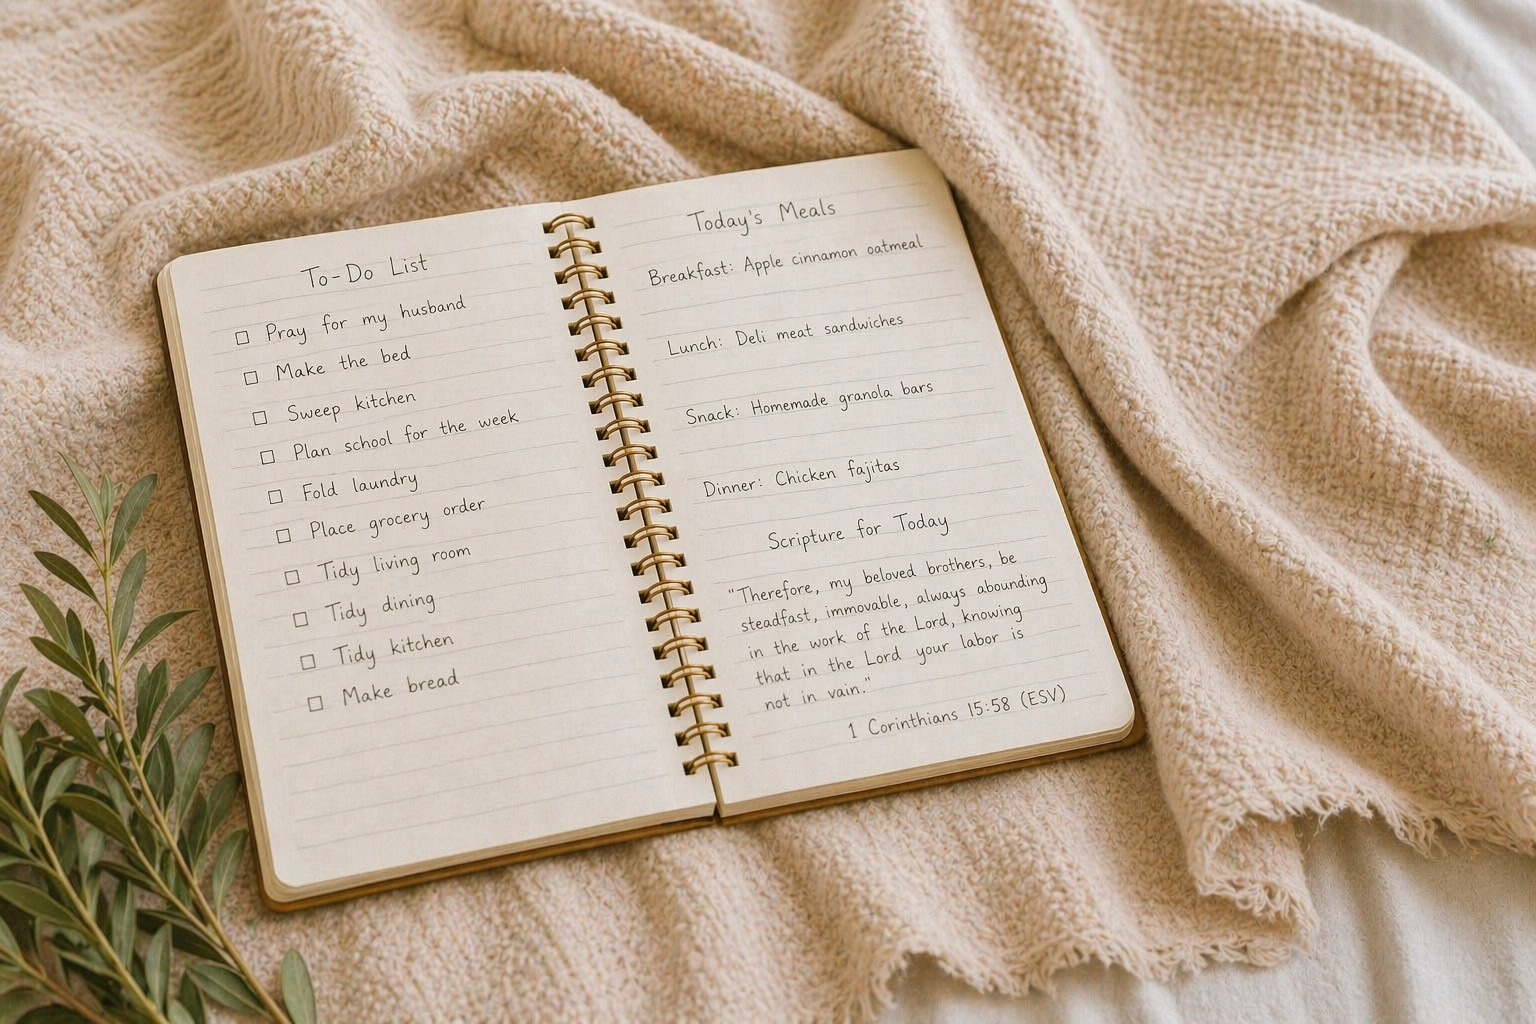 To-Do List
☐ Pray for my husband
☐ Make the bed
☐ Sweep kitchen
☐ Plan school for the week
☐ Fold laundry
☐ Place grocery order
☐ Tidy living room
☐ Tidy dining
☐ Tidy kitchen
☐ Make bread
Today's Meals
Breakfast: Apple cinnamon oatmeal
Lunch: Deli meat sandwiches
Snack: Homemade granola bars
Dinner: Chicken fajitas
Scripture for Today
"Therefore, my beloved brothers, be
steadfast, immovable, always abounding
in the work of the Lord, knowing
that in the Lord your labor is
not in vain."
1 Corinthians 15:58 (ESV)